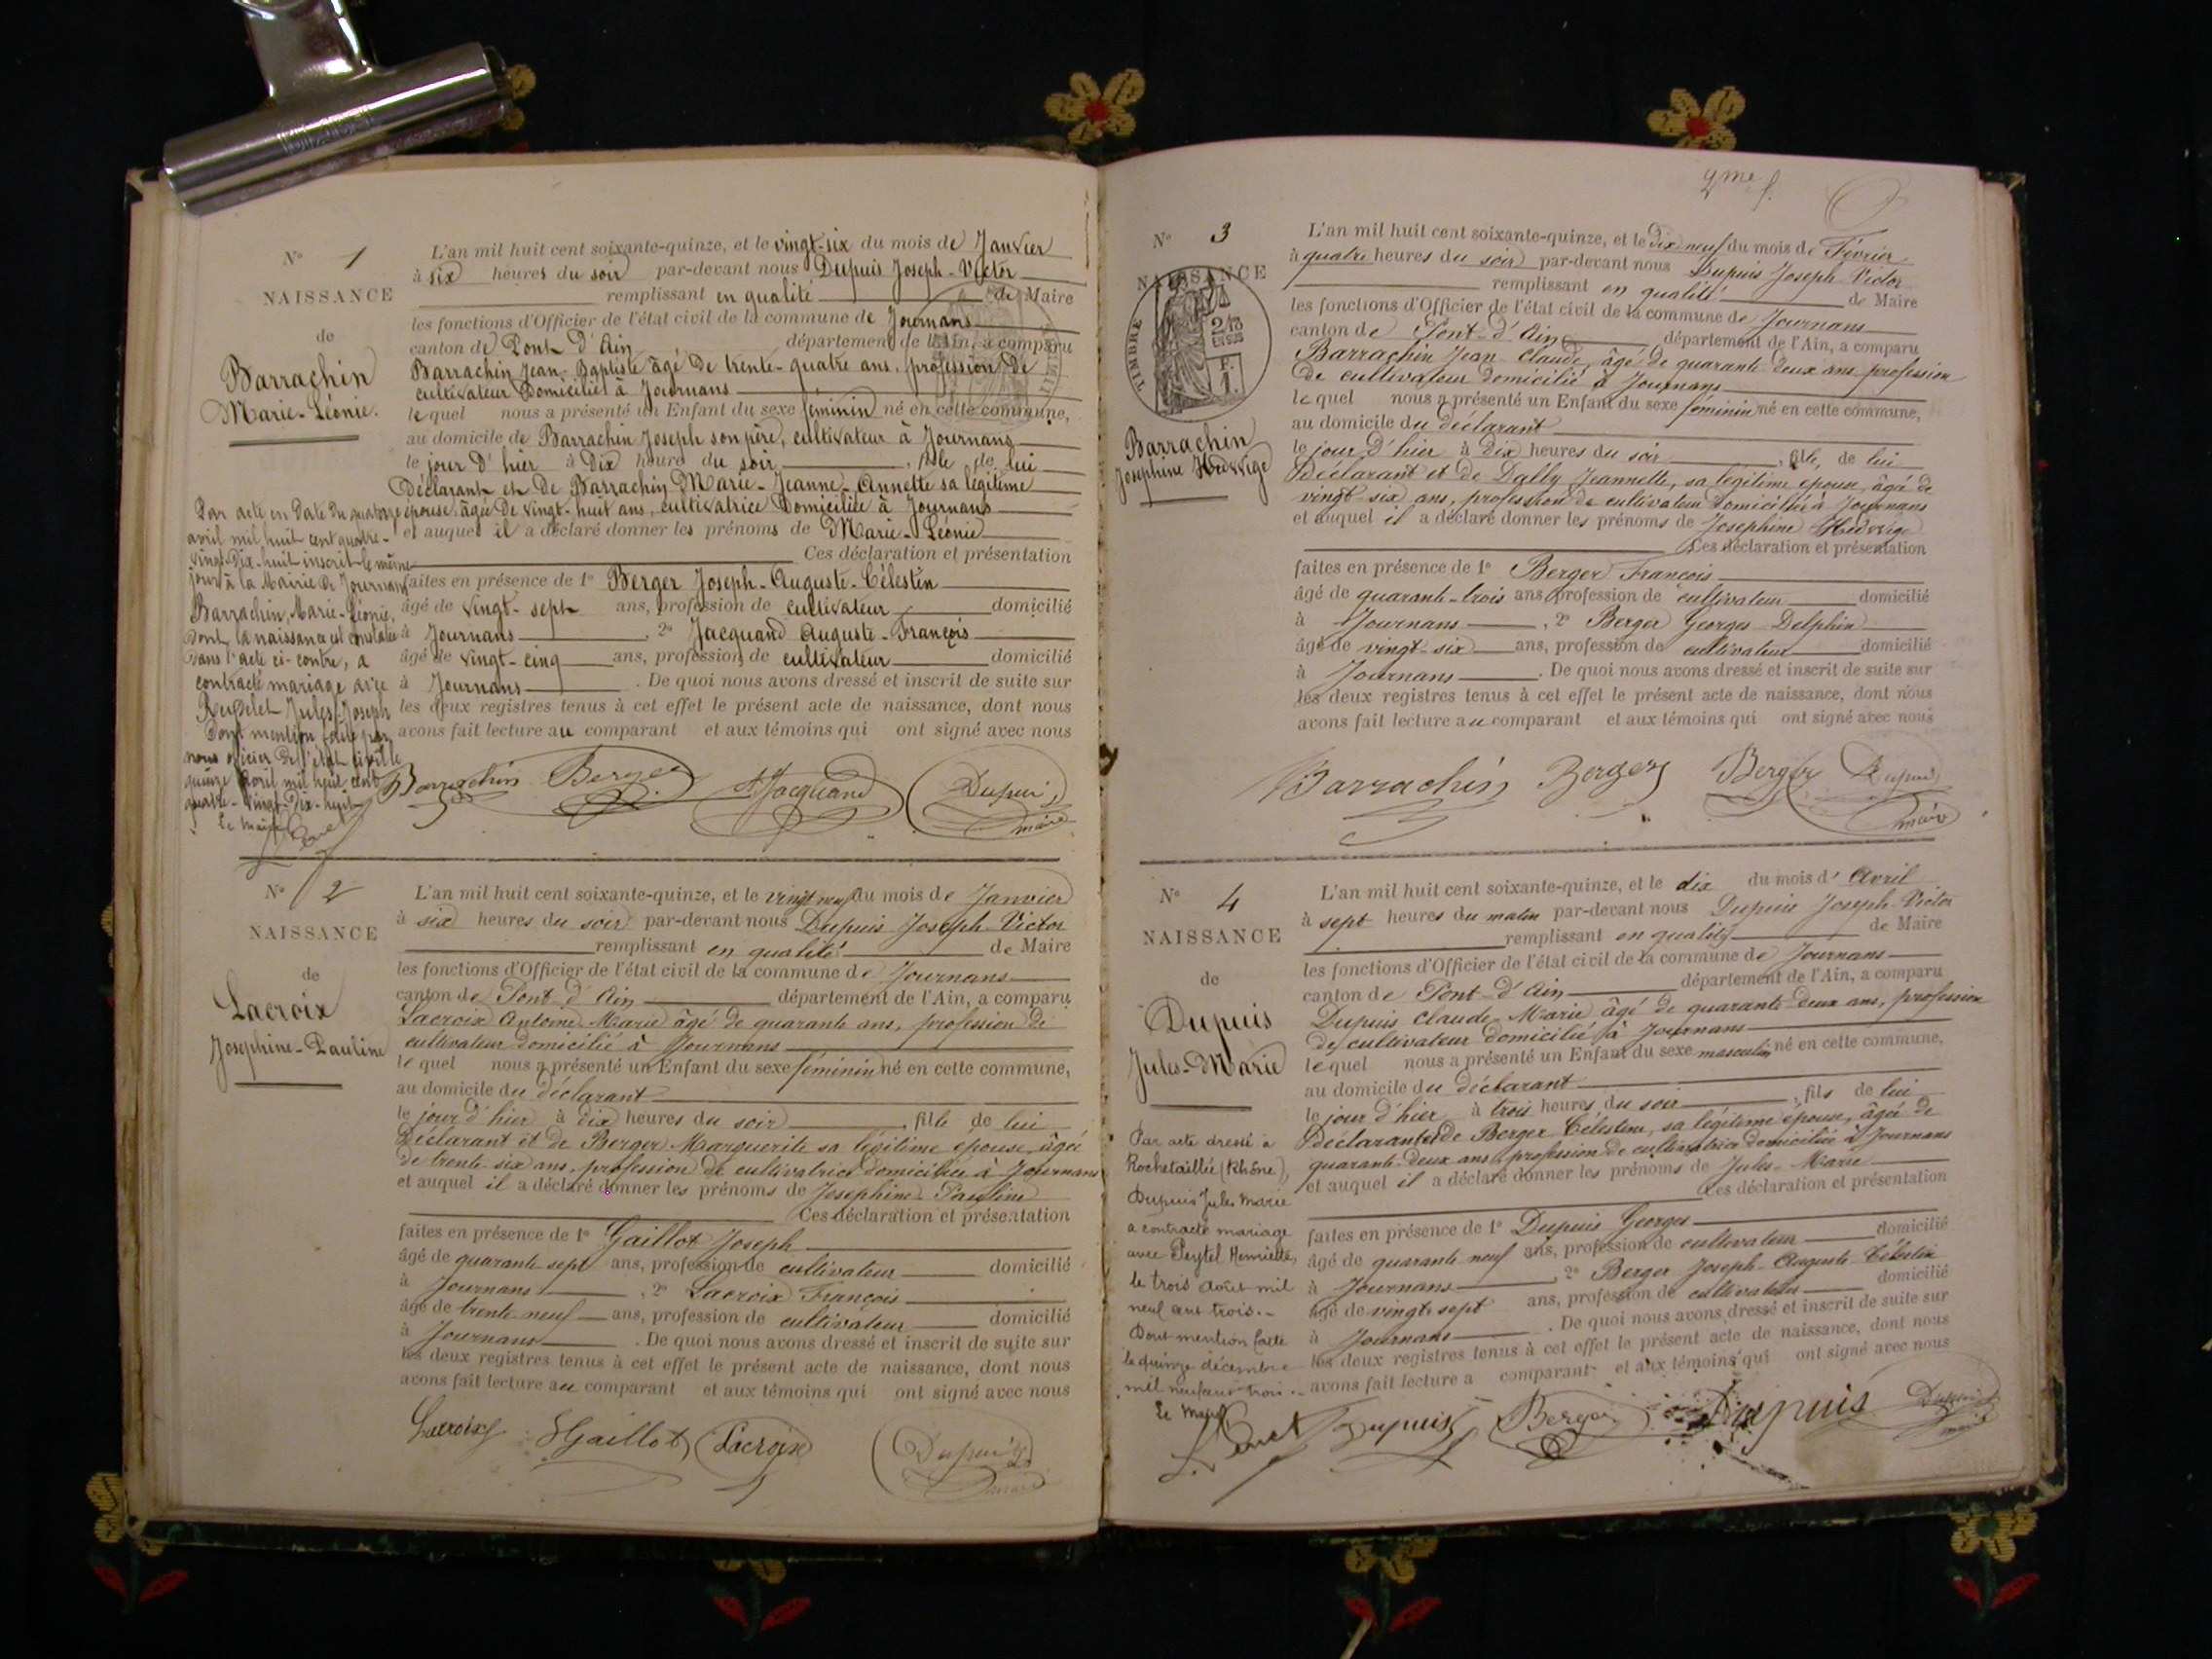 N° 1
NAISSANCE
de
Barrachin
Marie-Léonie.
L'an mil huit cent soixante-quinze, et le vingt-six du mois de Janvier
à six heures du soir par-devant nous Dupuis Joseph-Victor
remplissant en qualité de Maire
les fonctions d'Officier de l'état civil de la commune de Journans
canton de Pont d'Ain département de l'Ain, a comparu
Barrachin Jean-Baptiste âgé de trente-quatre ans, profession de
cultivateur domicilié à Journans
lequel nous a présenté un Enfant du sexe féminin né en cette commune,
au domicile de Barrachin Joseph son père, cultivateur à Journans
le jour d'hier à dix heures du soir, fille de lui
déclarant et de Barrachin Marie-Jeanne-Annette sa légitime
épouse âgée de vingt-huit ans, cultivatrice domiciliée à Journans
et auquel il a déclaré donner les prénoms de Marie-Léonie
Ces déclaration et présentation
faites en présence de 1° Berger Joseph-Auguste-Célestin
âgé de vingt-sept ans, profession de cultivateur domicilié
à Journans, 2° Jacquand Auguste-François
âgé de vingt-cinq ans, profession de cultivateur domicilié
à Journans. De quoi nous avons dressé et inscrit de suite sur
les deux registres tenus à cet effet le présent acte de naissance, dont nous
avons fait lecture au comparant et aux témoins qui ont signé avec nous
Barrachin Berger Jacquand Dupuis
maire
Par acte en date du quatorze
avril mil huit cent quatre-
vingt-dix-huit inscrit le même
jour à la Mairie de Journans
Barrachin Marie-Léonie,
dont la naissance est constatée
dans l'acte ci-contre, a
contracté mariage avec
Jules-Joseph
Dont mention faite par
nous officier de l'état civil le
quinze avril mil huit cent
quatre-vingt-dix-huit
Le Maire
N° 2
NAISSANCE
de
Lacroix
Josephine-Pauline
L'an mil huit cent soixante-quinze, et le vingt neuf du mois de Janvier
à six heures du soir par-devant nous Dupuis Joseph-Victor
remplissant en qualité de Maire
les fonctions d'Officier de l'état civil de la commune de Journans
canton de Pont d'Ain département de l'Ain, a comparu
Lacroix Antoine-Marie âgé de quarante ans, profession de
cultivateur domicilié à Journans
lequel nous a présenté un Enfant du sexe féminin né en cette commune,
au domicile du déclarant
le jour d'hier à dix heures du soir, fille de lui
déclarant et de Berger Marguerite sa légitime épouse, âgée
de trente-six ans, profession de cultivatrice domiciliée à Journans
et auquel il a déclaré donner les prénoms de Josephine Pauline
Ces déclaration et présentation
faites en présence de 1° Gaillot Joseph
âgé de quarante-sept ans, profession de cultivateur domicilié
à Journans, 2° Lacroix François
âgé de trente-neuf ans, profession de cultivateur domicilié
à Journans. De quoi nous avons dressé et inscrit de suite sur
les deux registres tenus à cet effet le présent acte de naissance, dont nous
avons fait lecture au comparant et aux témoins qui ont signé avec nous
Lacroix Gaillot Lacroix Dupuis
maire
2me f.
N° 3
NAISSANCE
TIMBRE
Barrachin
Josephine Hedwige
L'an mil huit cent soixante-quinze, et le dix neuf du mois de Février
à quatre heures du soir par-devant nous Dupuis Joseph-Victor
remplissant en qualité de Maire
les fonctions d'Officier de l'état civil de la commune de Journans
canton de Pont-d'Ain département de l'Ain, a comparu
Barrachin Jean-Claude, âgé de quarante-deux ans profession
de cultivateur domicilié à Journans
lequel nous a présenté un Enfant du sexe féminin né en cette commune,
au domicile du déclarant
le jour d'hier à dix heures du soir, fille, de lui
déclarant et de Dally Jeannette, sa légitime épouse, âgé de
vingt-six ans, profession de cultivateur domiciliée à Journans
et auquel il a déclaré donner les prénoms de Josephine Hedwige
Ces déclaration et présentation
faites en présence de 1° Berger François
âgé de quarante-trois ans profession de cultivateur domicilié
à Journans, 2° Berger Georges Delphin
âgé de vingt-six ans, profession de cultivateur domicilié
à Journans. De quoi nous avons dressé et inscrit de suite sur
les deux registres tenus à cet effet le présent acte de naissance, dont nous
avons fait lecture au comparant et aux témoins qui ont signé avec nous
Barrachin Berger Berger Dupuis
maire
N° 4
NAISSANCE
de
Dupuis
Jules-Marie
L'an mil huit cent soixante-quinze, et le dix du mois d'Avril
à sept heures du matin par-devant nous Dupuis Joseph-Victor
remplissant en qualité de Maire
les fonctions d'Officier de l'état civil de la commune de Journans
canton de Pont-d'Ain département de l'Ain, a comparu
Dupuis Claude-Marie âgé de quarante-deux ans, profession
de cultivateur domicilié à Journans
lequel nous a présenté un Enfant du sexe masculin né en cette commune,
au domicile du déclarant
le jour d'hier à trois heures du soir, fils de lui
déclarant et de Berger Célestine, sa légitime épouse, âgée de
quarante-deux ans profession de cultivatrice domiciliée à Journans
et auquel il a déclaré donner les prénoms de Jules-Marie
Ces déclaration et présentation
faites en présence de 1° Dupuis Georges
âgé de quarante neuf ans, profession de cultivateur domicilié
à Journans, 2° Berger Joseph-Auguste-Célestin
âgé de vingt-sept ans, profession de cultivateur domicilié
à Journans. De quoi nous avons dressé et inscrit de suite sur
les deux registres tenus à cet effet le présent acte de naissance, dont nous
avons fait lecture a comparant et aux témoins qui ont signé avec nous
Dupuis Berger Dupuis Dupuis
maire
Par acte dressé à
Rochetaillée (Rhône),
Dupuis Jules Marie
a contracté mariage
avec Peytel Henriette,
le trois août mil
neuf cent trois.-
Dont mention faite
le quinze décembre
mil neuf cent trois.-
Le Maire